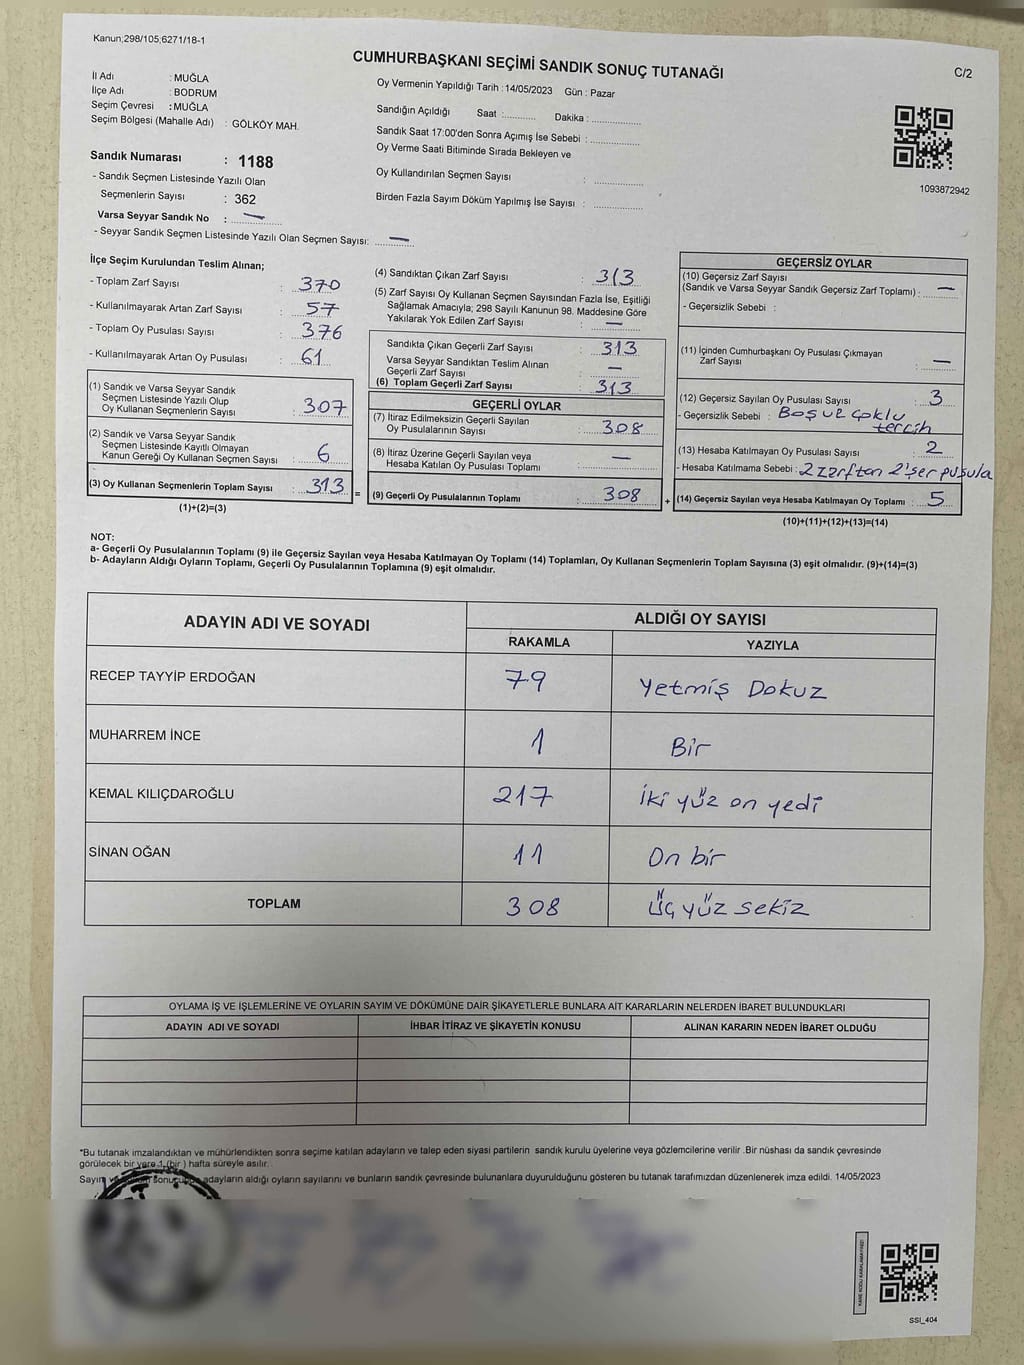 Kanun;298/105;6271/18-1
CUMHURBAŞKANI SEÇİMİ SANDIK SONUÇ TUTANAĞI
C/2
İl Adı : MUĞLA
İlçe Adı : BODRUM
Seçim Çevresi : MUĞLA
Seçim Bölgesi (Mahalle Adı) : GÖLKÖY MAH.
Sandık Numarası : 1188
- Sandık Seçmen Listesinde Yazılı Olan
Seçmenlerin Sayısı : 362
Varsa Seyyar Sandık No : —
- Seyyar Sandık Seçmen Listesinde Yazılı Olan Seçmen Sayısı: —
Oy Vermenin Yapıldığı Tarih : 14/05/2023 Gün : Pazar
Sandığın Açıldığı Saat :........... Dakika :................
Sandık Saat 17:00'den Sonra Açımış İse Sebebi :................
Oy Verme Saati Bitiminde Sırada Bekleyen ve
Oy Kullandırılan Seçmen Sayısı : ................
Birden Fazla Sayım Döküm Yapılmış İse Sayısı : ................
1093872942
İlçe Seçim Kurulundan Teslim Alınan;
- Toplam Zarf Sayısı : 370
- Kullanılmayarak Artan Zarf Sayısı : 57
- Toplam Oy Pusulası Sayısı : 376
- Kullanılmayarak Artan Oy Pusulası : 61
(1) Sandık ve Varsa Seyyar Sandık
Seçmen Listesinde Yazılı Olup
Oy Kullanan Seçmenlerin Sayısı : 307
(2) Sandık ve Varsa Seyyar Sandık
Seçmen Listesinde Kayıtlı Olmayan
Kanun Gereği Oy Kullanan Seçmen Sayısı : 6
(3) Oy Kullanan Seçmenlerin Toplam Sayısı : 313
(1)+(2)=(3)
(4) Sandıktan Çıkan Zarf Sayısı : 313
(5) Zarf Sayısı Oy Kullanan Seçmen Sayısından Fazla İse, Eşitliği
Sağlamak Amacıyla; 298 Sayılı Kanunun 98. Maddesine Göre
Yakılarak Yok Edilen Zarf Sayısı : —
Sandıkta Çıkan Geçerli Zarf Sayısı : 313
Varsa Seyyar Sandıktan Teslim Alınan
Geçerli Zarf Sayısı : —
(6) Toplam Geçerli Zarf Sayısı : 313
GEÇERLİ OYLAR
(7) İtiraz Edilmeksizin Geçerli Sayılan
Oy Pusulalarının Sayısı : 308
(8) İtiraz Üzerine Geçerli Sayılan veya
Hesaba Katılan Oy Pusulası Toplamı : —
= (9) Geçerli Oy Pusulalarının Toplamı : 308 +
GEÇERSİZ OYLAR
(10) Geçersiz Zarf Sayısı
(Sandık ve Varsa Seyyar Sandık Geçersiz Zarf Toplamı) : —
- Geçersizlik Sebebi :
(11) İçinden Cumhurbaşkanı Oy Pusulası Çıkmayan
Zarf Sayısı : —
(12) Geçersiz Sayılan Oy Pusulası Sayısı : 3
- Geçersizlik Sebebi : Boş ve çoklu
tercih
(13) Hesaba Katılmayan Oy Pusulası Sayısı : 2
- Hesaba Katılmama Sebebi : 2 zarftan 2'şer pusula
(14) Geçersiz Sayılan veya Hesaba Katılmayan Oy Toplamı : 5
(10)+(11)+(12)+(13)=(14)
NOT:
a- Geçerli Oy Pusulalarının Toplamı (9) ile Geçersiz Sayılan veya Hesaba Katılmayan Oy Toplamı (14) Toplamları, Oy Kullanan Seçmenlerin Toplam Sayısına (3) eşit olmalıdır. (9)+(14)=(3)
b- Adayların Aldığı Oyların Toplamı, Geçerli Oy Pusulalarının Toplamına (9) eşit olmalıdır.
ADAYIN ADI VE SOYADI ALDIĞI OY SAYISI
RAKAMLA YAZIYLA
RECEP TAYYİP ERDOĞAN 79 Yetmiş Dokuz
MUHARREM İNCE 1 Bir
KEMAL KILIÇDAROĞLU 217 İki yüz on yedi
SİNAN OĞAN 11 On bir
TOPLAM 308 Üç yüz sekiz
OYLAMA İŞ VE İŞLEMLERİNE VE OYLARIN SAYIM VE DÖKÜMÜNE DAİR ŞİKAYETLERLE BUNLARA AİT KARARLARIN NELERDEN İBARET BULUNDUKLARI
ADAYIN ADI VE SOYADI İHBAR İTİRAZ VE ŞİKAYETİN KONUSU ALINAN KARARIN NEDEN İBARET OLDUĞU
*Bu tutanak imzalandıktan ve mühürlendikten sonra seçime katılan adayların ve talep eden siyasi partilerin sandık kurulu üyelerine veya gözlemcilerine verilir .Bir nüshası da sandık çevresinde
görülecek bir yere 1 (bir ) hafta süreyle asılır.
Sayım adayların aldığı oyların sayılarını ve bunların sandık çevresinde bulunanlara duyurulduğunu gösteren bu tutanak tarafımızdan düzenlenerek imza edildi. 14/05/2023
SSI_404